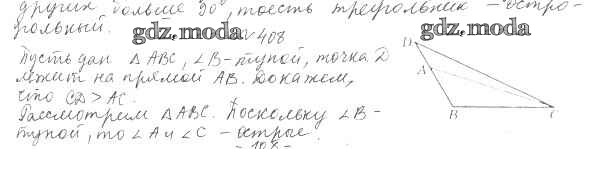 других больше 90°, то есть треугольник – остро-
угольный.
gdz.moda № 408 gdz.moda
Пусть дан △ ABC, ∠B – тупой, точка D
лежит на прямой AB. Докажем,
что CD > AC.
Рассмотрим △ABC. Поскольку ∠B –
тупой, то ∠A и ∠C – острые.
D
A
B C